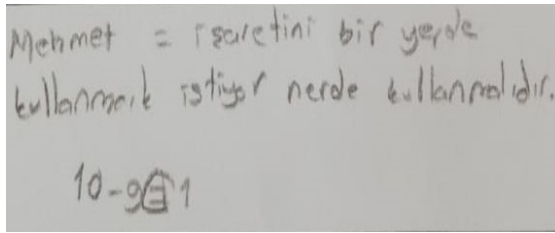 Mehmet = işaretini bir yerde
kullanmak istiyor nerde kullanmalıdır.
10-9=1